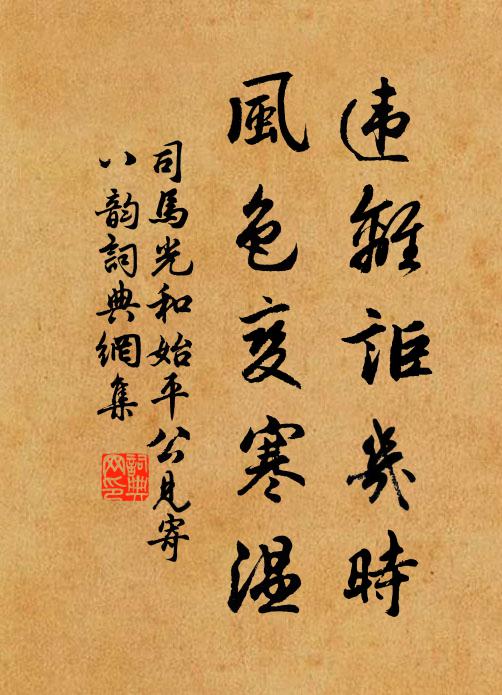 違離詎幾時
風色變寒溫
司馬光和始平公見寄
八韵詞典網集
詞典
网印